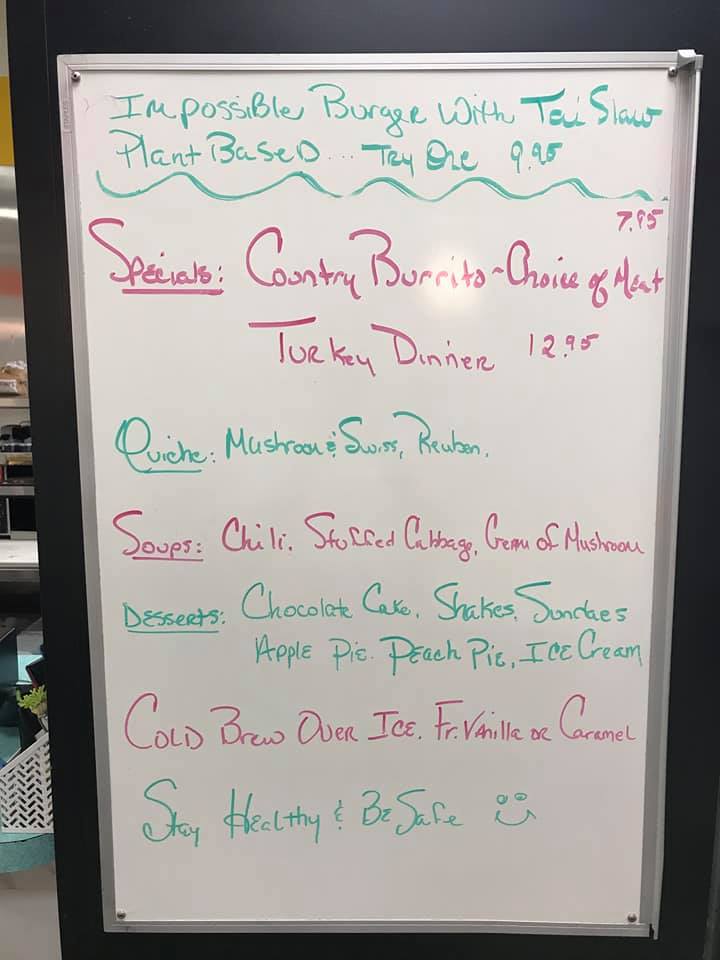 Impossible Burger With Tai Slaw
Plant Based... Try One 9.95
7.95
Specials: Country Burrito ~ Choice of Meat
Turkey Dinner 12.95
Quiche: Mushroom & Swiss, Reuben.
Soups: Chili. Stuffed Cabbage, Cream of Mushroom
Desserts: Chocolate Cake. Shakes. Sundaes
Apple Pie. Peach Pie, Ice Cream
Cold Brew Over Ice. Fr. Vanilla or Caramel
Stay Healthy & Be Safe
STAPLES